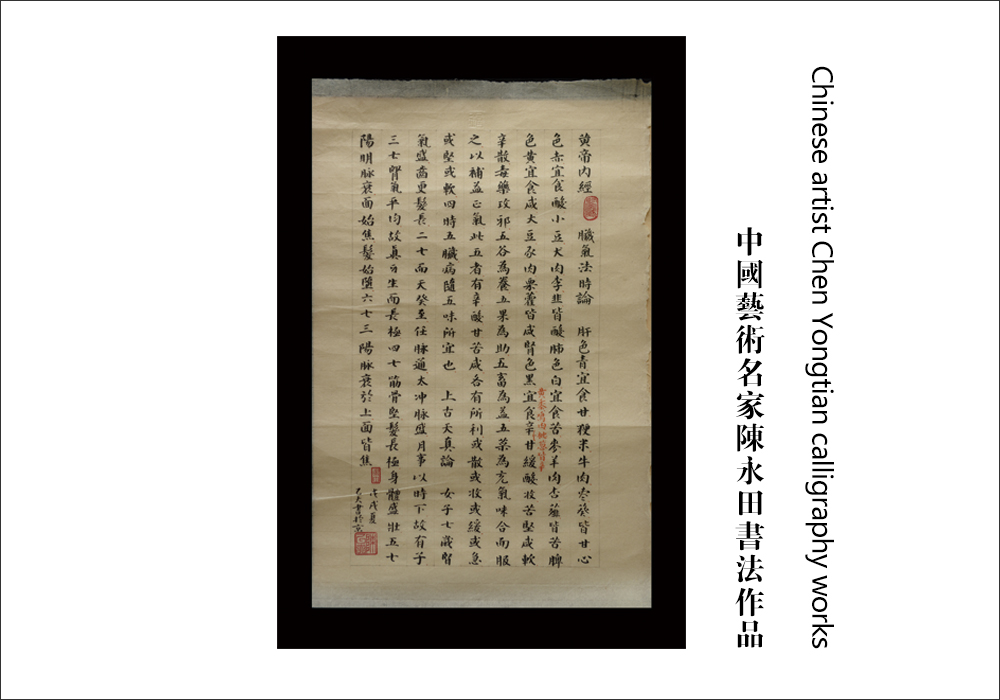 黄帝内經 臟氣法時論 肝色青宜食甘粳米牛肉枣葵皆甘心
色赤宜食酸小豆犬肉李韭皆酸肺色白宜食苦麥羊肉杏薤皆苦脾
色黄宜食咸大豆豕肉栗藿皆咸腎色黑宜食辛甘緩酸收苦堅咸軟
辛散毒藥攻邪五谷為養五果為助五畜為益五菜為充氣味合而服
之以補益正氣此五者有辛酸甘苦咸各有所利或散或收或緩或急
或堅或軟四時五臟病隨五味所宜也 上古天真論 女子七歲腎
氣盛齒更髮長二七而天癸至任脉通太冲脉盛月事以時下故有子
三七腎氣平均故真牙生而長極四七筋骨堅髮長極身體盛壯五七
陽明脉衰面始焦髮始墮六七三陽脉衰於上面皆焦
戊戌夏
書於京
中國藝術名家陳永田書法作品
Chinese artist Chen Yongtian calligraphy works